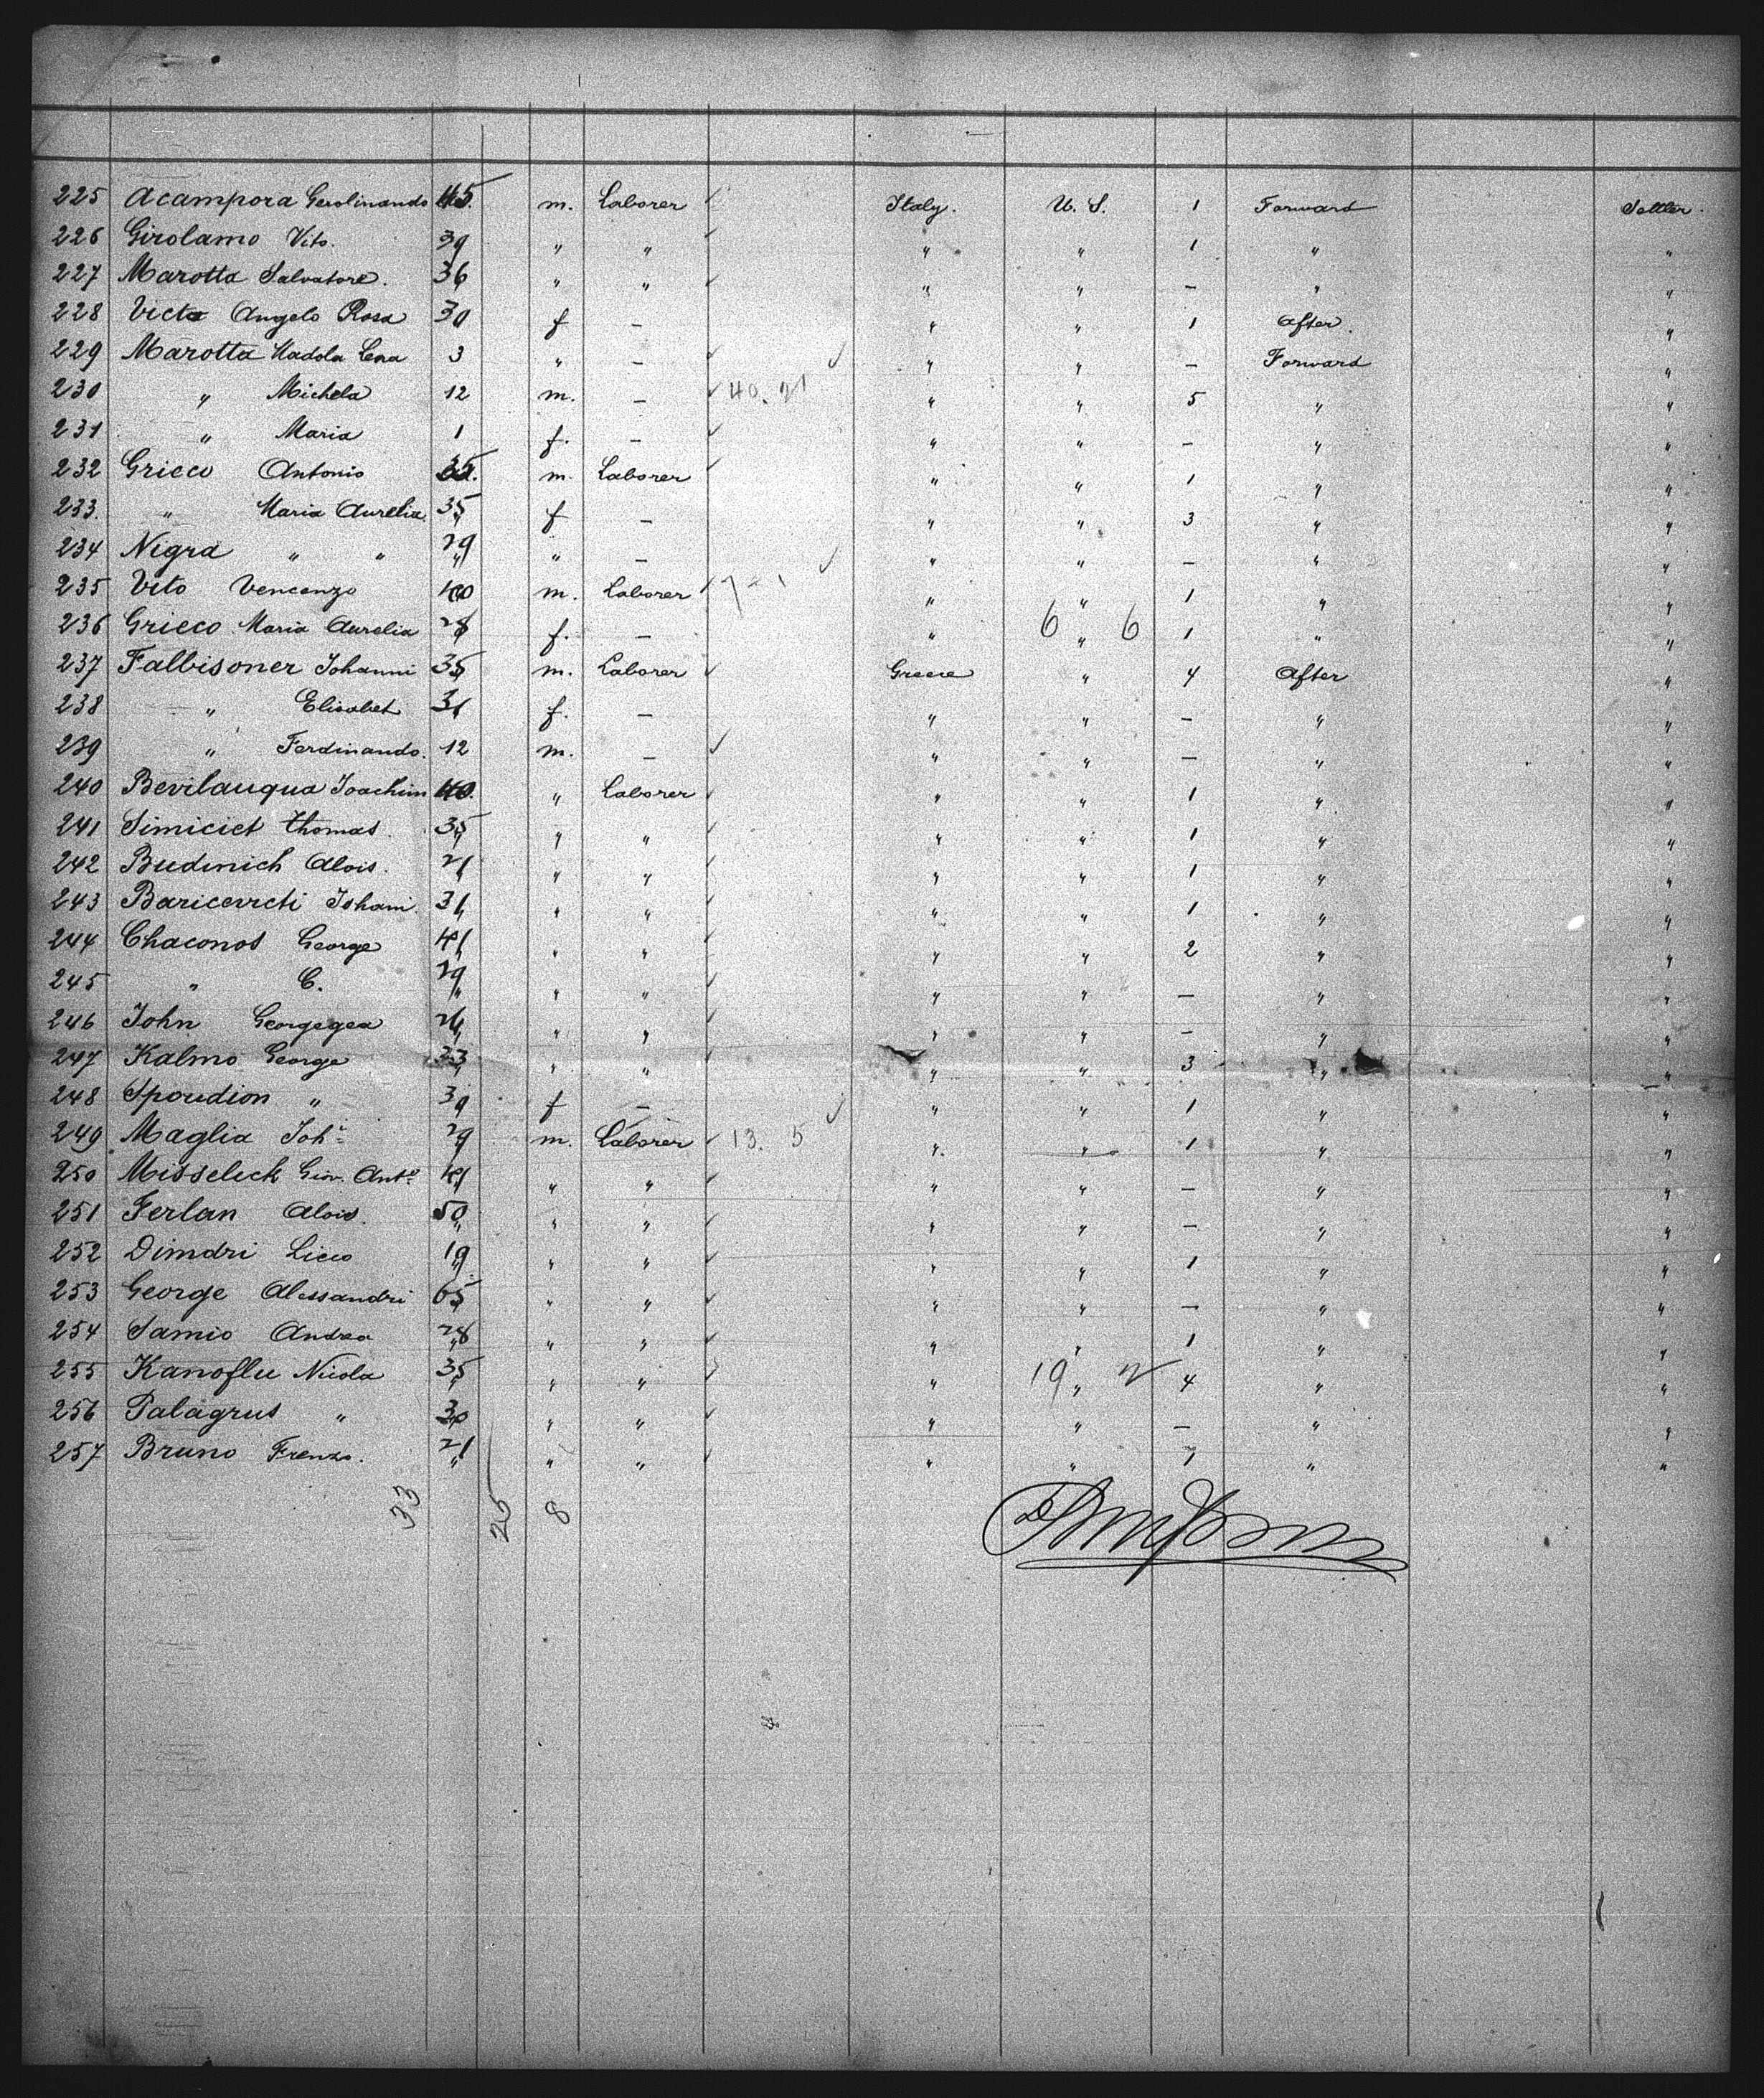 225 Acampora Gerolinando 45. m. Laborer Italy. U. S. 1 Forward Settler.
226 Girolamo Vito. 39 " " " " 1 " "
227 Marotta Salvatore. 36 " " " " — " "
228 Victo Angelo Rosa 30 f — " " 1 After. "
229 Marotta Madola Lena 3 " — " " — Forward "
230 " Michela 12 m. — 40. 21 " " 5 " "
231 " Maria 1 f. — " " — " "
232 Grieco Antonio 35. m. Laborer " " 1 " "
233. " Maria Aurelia. 35 f — " " 3 " "
234 Nigra " " 29 " — " " — " "
235 Vito Vencenzo 40 m. Laborer 7 - 1 " " 1 " "
236 Grieco Maria Aurelia 28 f. — " 6 " 6 1 " "
237 Falbisoner Johanni 35 m. Laborer Greece " 4 After "
238 " Elisabet 31 f. — " " — " "
239 " Ferdinando. 12 m. — " " — " "
240 Bevilauqua Joachim 40. " Laborer " " 1 " "
241 Simiciet Thomas. 35 " " " " 1 " "
242 Budinich Alois. 21 " " " " 1 " "
243 Baricevicti Johani. 31 " " " " 1 " "
244 Chaconos George 41 " " " " 2 " "
245 " C. 29 " " " " — " "
246 John Georgegea 24 " " " " — " "
247 Kalmo George 33 " " " " 3 " "
248 Spoudion " 30 f — " " 1 " "
249 Maglia Joh: 29 m. Laborer 13. 5 " " 1 " "
250 Misselick Giov. Ant: 41 " " " " — " "
251 Ferlan Alois. 50 " " " " — " "
252 Dimdri Lieo 19 " " " " 1 " "
253 George Alessandri 65 " " " " — " "
254 Samio Andrea 28 " " " " 1 " "
255 Kanoflu Nicola 35 " " " 19 " 2 4 " "
256 Palagrus " 30 " " " " — " "
257 Bruno Frenzo. 21 " " " " 1 " "
33 25 8